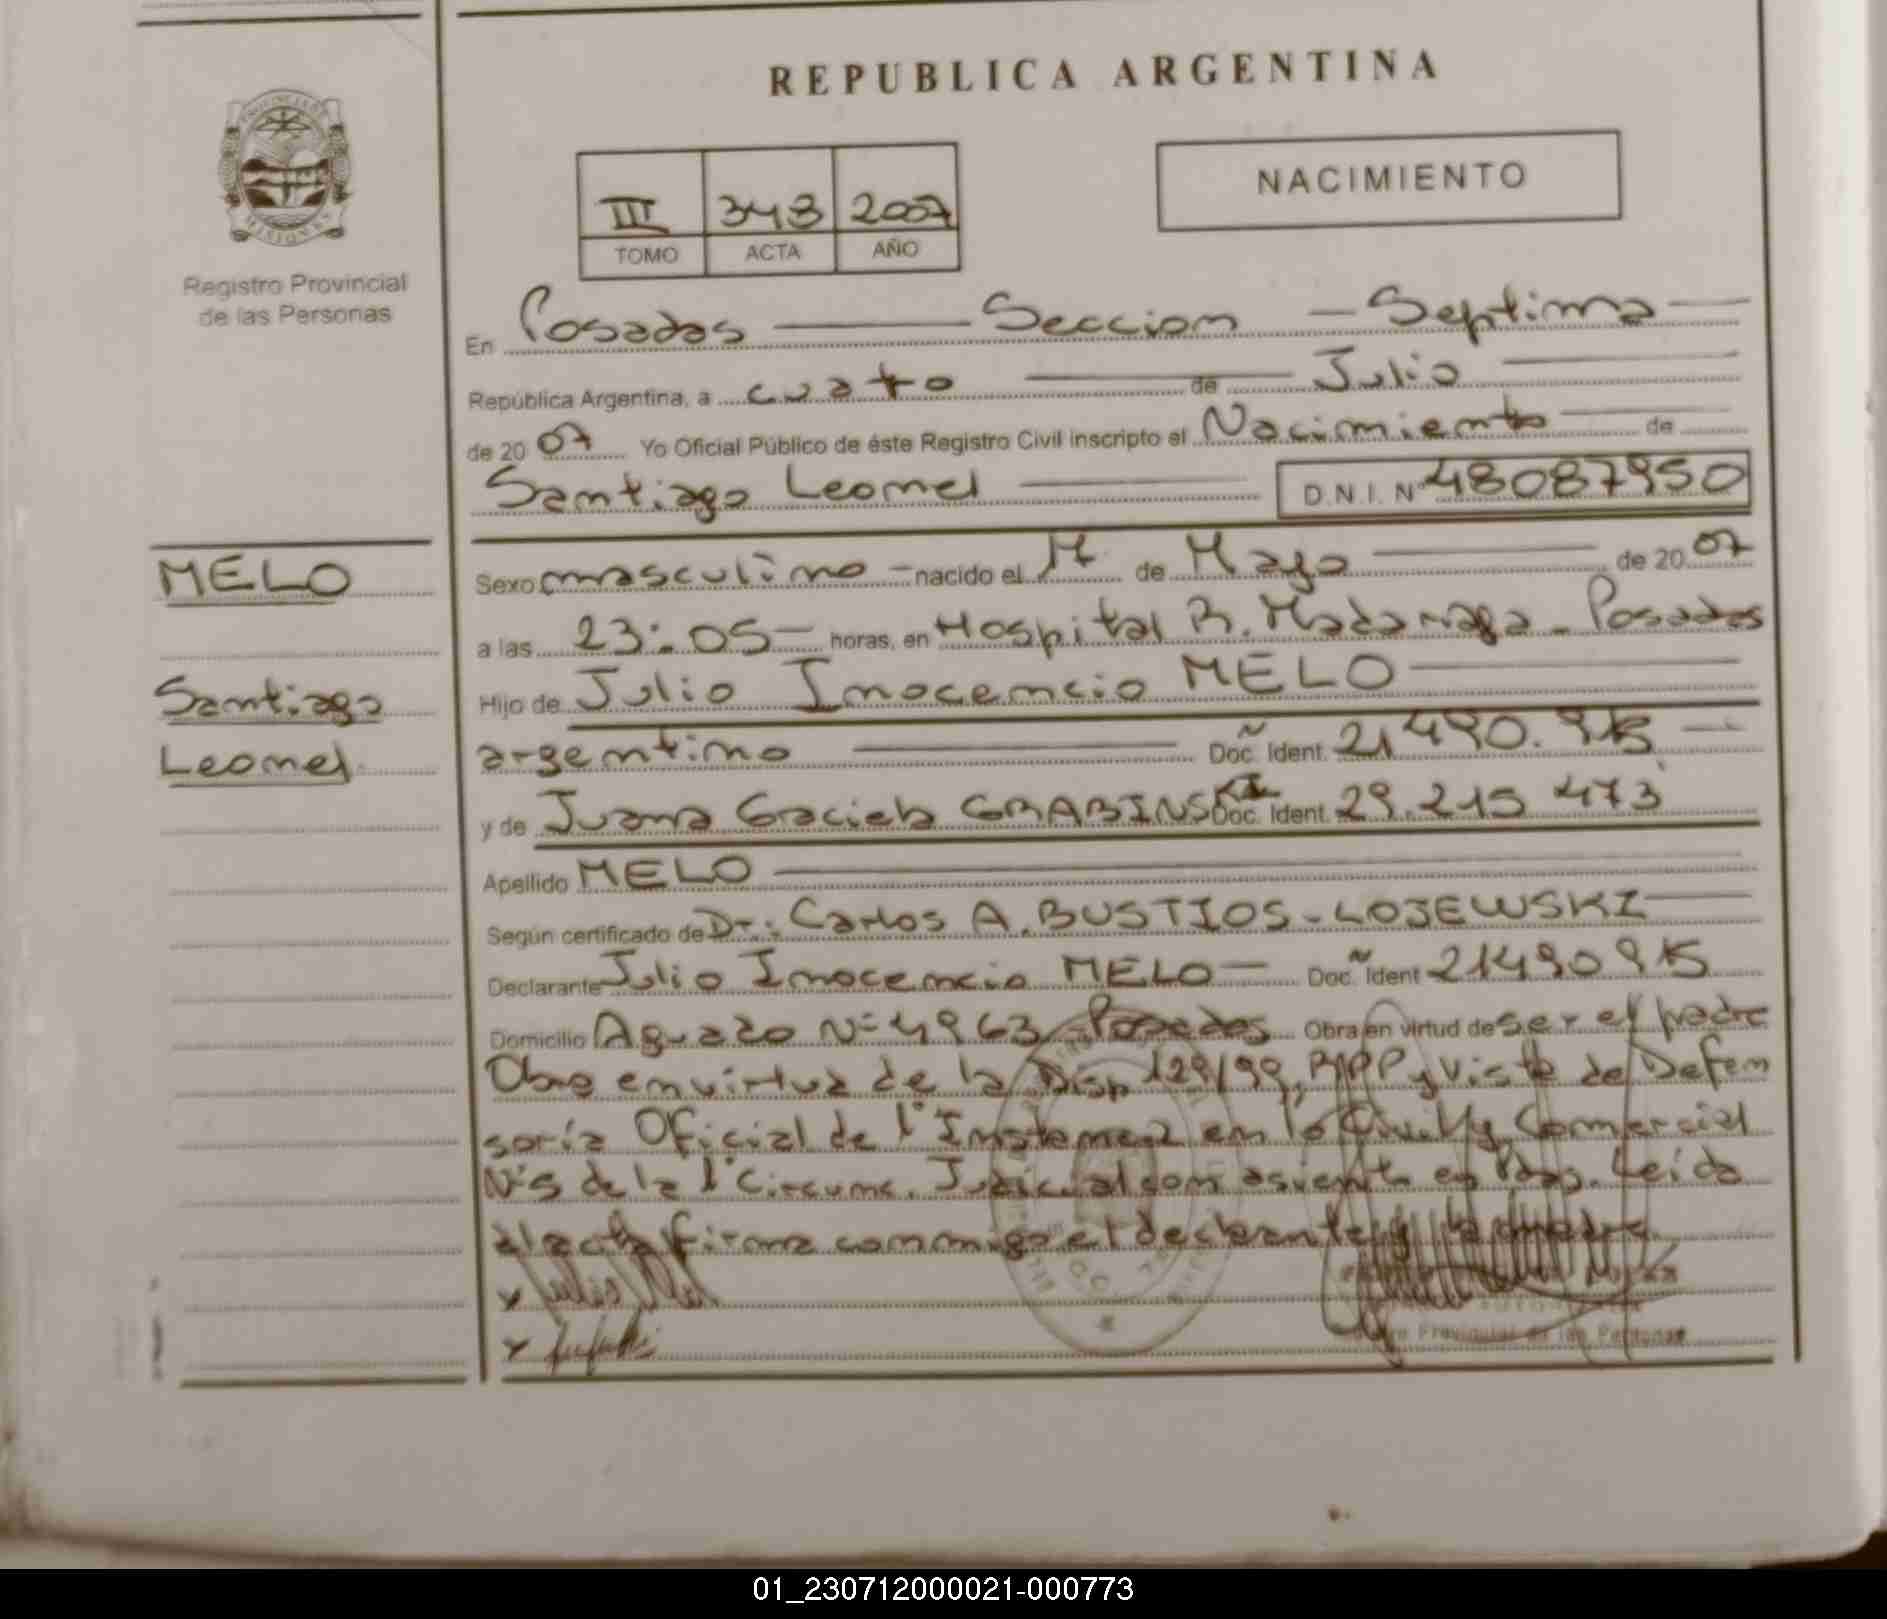 REPUBLICA ARGENTINA
NACIMIENTO
III 343 2007
TOMO ACTA AÑO
Registro Provincial
de las Personas
En Posadas Seccion Septima
República Argentina, a cuatro de Julio
de 2007 Yo Oficial Público de éste Registro Civil inscripto el Nacimiento de
Santiago Leonel D.N.I. Nº 48087950
MELO
Santiago
Leonel
Sexo masculino nacido el 17 de Mayo de 2007
a las 23:05 horas, en Hospital R. Madariaga - Posadas
Hijo de Julio Inocencio MELO
argentino Doc. Ident. 21490.915
y de Juana Graciela GRABINSKI Doc. Ident. 29.215 473
Apellido MELO
Según certificado de Dr.: Carlos A. BUSTIOS - LOJEWSKI
Declarante Julio Inocencio MELO Doc. Ident 21490915
Domicilio Aguado Nº 4963 Posadas Obra en virtud de ser el padre
Obra en virtud de la Disp 129/99, RPP y Vista de Defen
soria Oficial de 1º Instancia en lo Civil y Comercial
Nº5 de la 1º Circunc. Judicial con asiento en Pdas. Leida
el acta firma conmigo el declarante y la madre
Provincial de las Personas
01_230712000021-000773